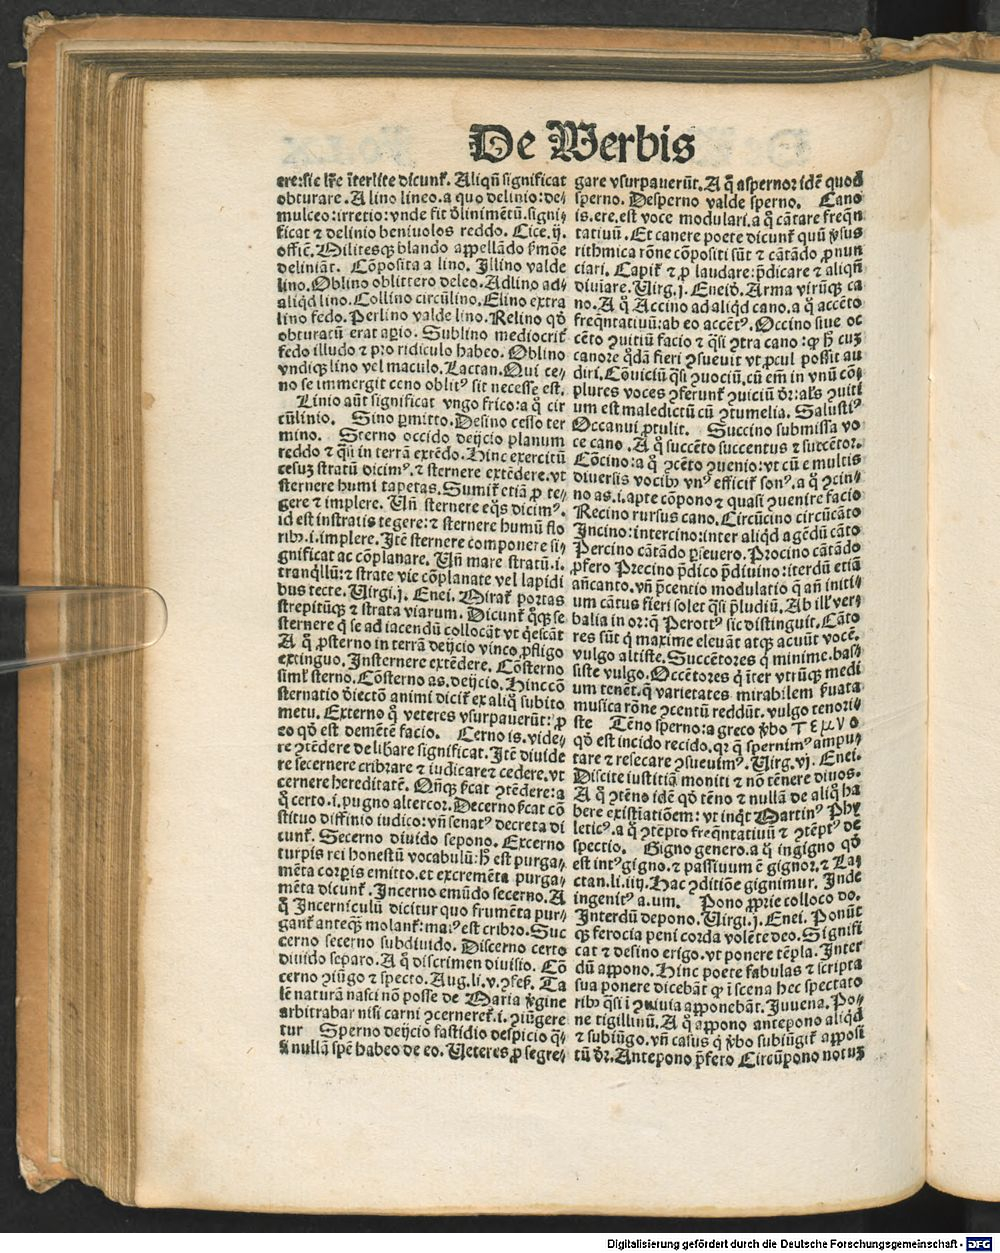 De Verbis
ere:sic lr̄e īterlite dicunt᷑. Aliqñ significat
obturare. A lino lineo. a quo delinio:de⸗
mulceo:irretio:vnde fit ḋlinimētū.signi⸗
ficat ⁊ delinio beniuolos reddo. Cice.ij.
offic̄. Militesqꝫ blando appellādo ẜmōe
deliniāt. Cōposita a lino. Illino valde
lino. Oblino oblittero deleo. Adlino ad⸗
aliqd lino. Collino circūlino. Elino extra
lino fedo. Perlino valde lino. Relino qḋ
obturatū erat aꝑio. Sublino mediocrit᷑
fedo illudo ⁊ pro ridiculo habeo. Oblino
vndiqꝫ lino vel maculo. Lactan. Qui ce⸗
no se immergit ceno oblitꝰ sit necesse est.
Linio aūt significat vngo frico:a q̊ cir
cūlinio. Sino ꝑmitto. Desino cesso ter
mino. Sterno occido deijcio planum
reddo ⁊ q̄si in terrā extēdo. Hinc exercitū
cesuꝫ stratū dicimꝰ. ⁊ sternere extēdere. vt
sternere humi tapetas. Sumit᷑ etiā ꝓ te⸗
gere ⁊ implere. Vñ sternere eq̊s dicimꝰ.
id est instratis tegere:⁊ sternere humū flo
ribꝫ.i.implere. Itē sternere componere si⸗
gnificat ac cōplanare. Vñ mare stratū.i.
tranqllū:⁊ strate vie cōplanate vel lapidi
bus tecte. Virgi.j. Enei. Mirat᷑ portas
strepitūqꝫ ⁊ strata viarum. Dicunt᷑ q̊qꝫ se
sternere q̇ se ad iacendū collocāt vt q̇escāt
A q̊ ꝓsterno in terrā deijcio vinco ꝓfligo
extinguo. Insternere extēdere. Cōsterno
simł sterno. Cōsterno as. deijcio. Hinc cō
sternatio ḋiectō animi dicit᷑ ex aliq̊ subito
metu. Externo q̊ veteres vsurpauerūt: ꝓ
eo qḋ est demētē facio. Cerno is. vide⸗
re ꝯtēdere delibare significat. Itē diuide
re secernere cribrare ⁊ iudicare ⁊ cedere. vt
cernere hereditatē. Qñqꝫ ẜcat ꝯtēdere:a
q̊ certo.i.pugno altercor. Decerno ẜcat cō
stituo diffinio iudico:vñ senatꝰ decreta di
cunt᷑. Secerno diuido sepono. Excerno
turpis rei honestū vocabulū:h̄ est purga⸗
mēta corꝑis emitto. et excremēta purga⸗
mēta dicunt᷑. Incerno emūdo secerno. A
q̊ Incerniculū dicitur quo frumēta pur⸗
gant᷑ anteqꝫ molant᷑:maiꝰ est cribro. Suc
cerno secerno subdiuido. Discerno certo
diuido separo. A q̊ discrimen diuisio. Cō
cerno ꝯiūgo ⁊ specto. Aug.li.v.ꝯfes᷑. Ta
lē naturā nasci nō posse de Maria v̇gine
arbitrabar nisi carni ꝯcerneret᷑.i.ꝯiūgere
tur Sperno deijcio fastidio despicio q̄⸗
si nullā spē habeo de eo. Veteres ꝓ segre⸗
gare vsurpauerūt. A q̊ aspernor idē quod
sperno. Desperno valde sperno. Cano
is.ere.est voce modulari. a q̊ cātare freqn̄
tatiuū. Et canere poete dicunt᷑ quū ꝟsus
rithmica rōne cōpositi sūt ⁊ cātādo ꝓnun
ciari. Capit᷑ ⁊ ꝓ laudare:p̄dicare ⁊ aliqñ
diuiare. Virg.j. Eneiḋ. Arma virūqꝫ ca
no. A q̊ Accino ad aliqd cano. a q̊ accēto
freqn̄tatiuū:ab eo accētꝰ. Occino siue oc
cēto ꝯuitiū facio ⁊ q̄si ꝯtra cano:qꝫ h̄ cuꝫ
canore q̊dā fieri ꝯsueuit vt ꝓcul possit au
diri. Cōuiciū q̄si ꝯuociū. cū em̄ in vnū cō⸗
plures voces ꝯferunt᷑ ꝯuiciū ḋr:als̄ ꝯuiti
um est maledictū cū ꝯtumelia. Salustiꝰ
Occanui ꝓtulit. Succino submissa vo
ce cano. A q̊ succēto succentus ⁊ succētor.
Cōcino:a q̊ ꝯcēto ꝯuenio:vt cū e multis
diuersis vocibꝫ vnꝰ efficit᷑ sonꝰ. a q̊ ꝯcin⸗
no as.i.apte cōpono ⁊ quasi ꝯuenire facio
Recino rursus cano. Circūcino circūcāto
Incino:intercino:inter aliqd agēdū cāto
Percino cātādo ꝑseuero. Procino cātādo
ꝓfero Precino p̄dico p̄diuino:iterdū etiā
añcanto. vñ p̄centio modulatio q̄ añ initi⸗
um cātus fieri solet q̄si p̄ludiū. Ab ill᷑ ver⸗
balia in or:q̄ Perottꝰ sic distinguit. Cāto
res sūt q̇ maxime eleuāt atqꝫ acuūt vocē.
vulgo altiste. Succētores q̇ minime. bas⸗
siste vulgo. Occētores q̇ īter vtrūqꝫ medi
um tenēt. q̇ varietates mirabilem ẜuata
musica rōne ꝯcentū reddūt. vulgo tenori⸗
ste Tēno sperno:a greco v̇bo τεμνο
qḋ est incido recido. qr q̄ spernimꝰ ampu⸗
tare ⁊ resecare ꝯsueuimꝰ. Virg.vj. Enei.
Discite iustitiā moniti ⁊ nō tēnere diuos.
A q̊ ꝯtēno idē qḋ tēno ⁊ nullā de aliq̊ ha
bere existīatiōem: vt inq̇t Martinꝰ Phy
leticꝰ. a q̊ ꝯtēpto freqn̄tatiuū ⁊ ꝯtēptꝰ de
spectio. Gigno genero. a q̊ ingigno qḋ
est intꝰ gigno. ⁊ passiuum ē gignor. ⁊ La⸗
ctan.li.iiij. Hac ꝯditiōe gignimur. Inde
ingenitꝰ a.um. Pono ꝓprie colloco do.
Interdū depono. Virgi.j. Enei. Ponūt
qꝫ ferocia peni corda volēte deo. Signifi
cat ⁊ desino erigo. vt ponere tēpla. Inter
dū appono. Hinc poete fabulas ⁊ scripta
sua ponere dicebāt qꝫ ī scena hec spectato
ribꝫ q̄si ī ꝯuiuia apponebāt. Iuuena. Po⸗
ne tigillinū. A q̊ appono antepono aliqd
⁊ subiūgo. vñ casus q̇ v̇bo subiūgit᷑ apposi
tū ḋr. Antepono p̄fero Circūpono notuꝫ
Digitalisierung gefördert durch die Deutsche Forschungsgemeinschaft - DFG